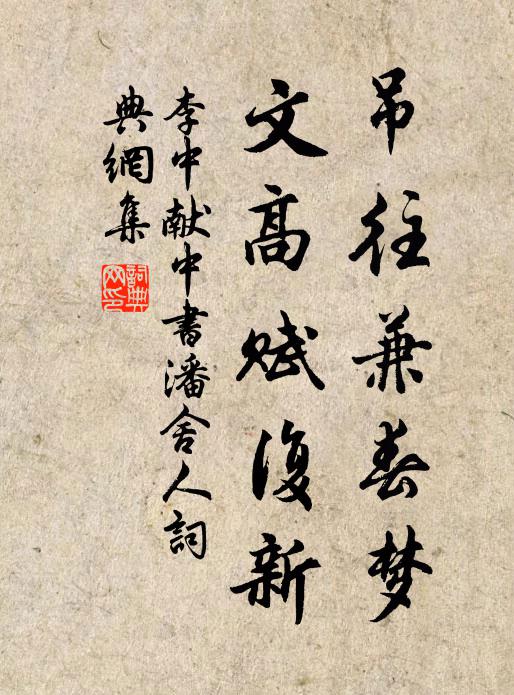 吊往兼春梦
文高赋復新
李中献中書潘舍人詞
典網集
詞典網印